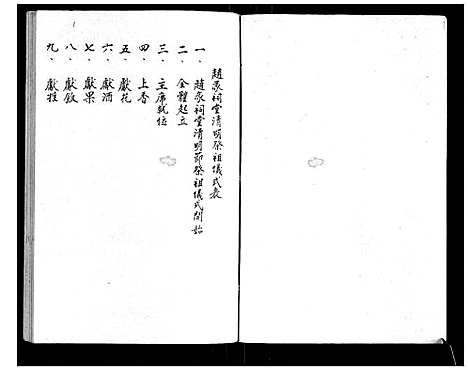 趙家祠堂清明祭祖儀式表
一、趙家祠堂清明節祭祖儀式開始
二、全體起立
三、主席就位
四、上香
五、獻花
六、獻酒
七、獻果
八、獻飲
九、獻牲